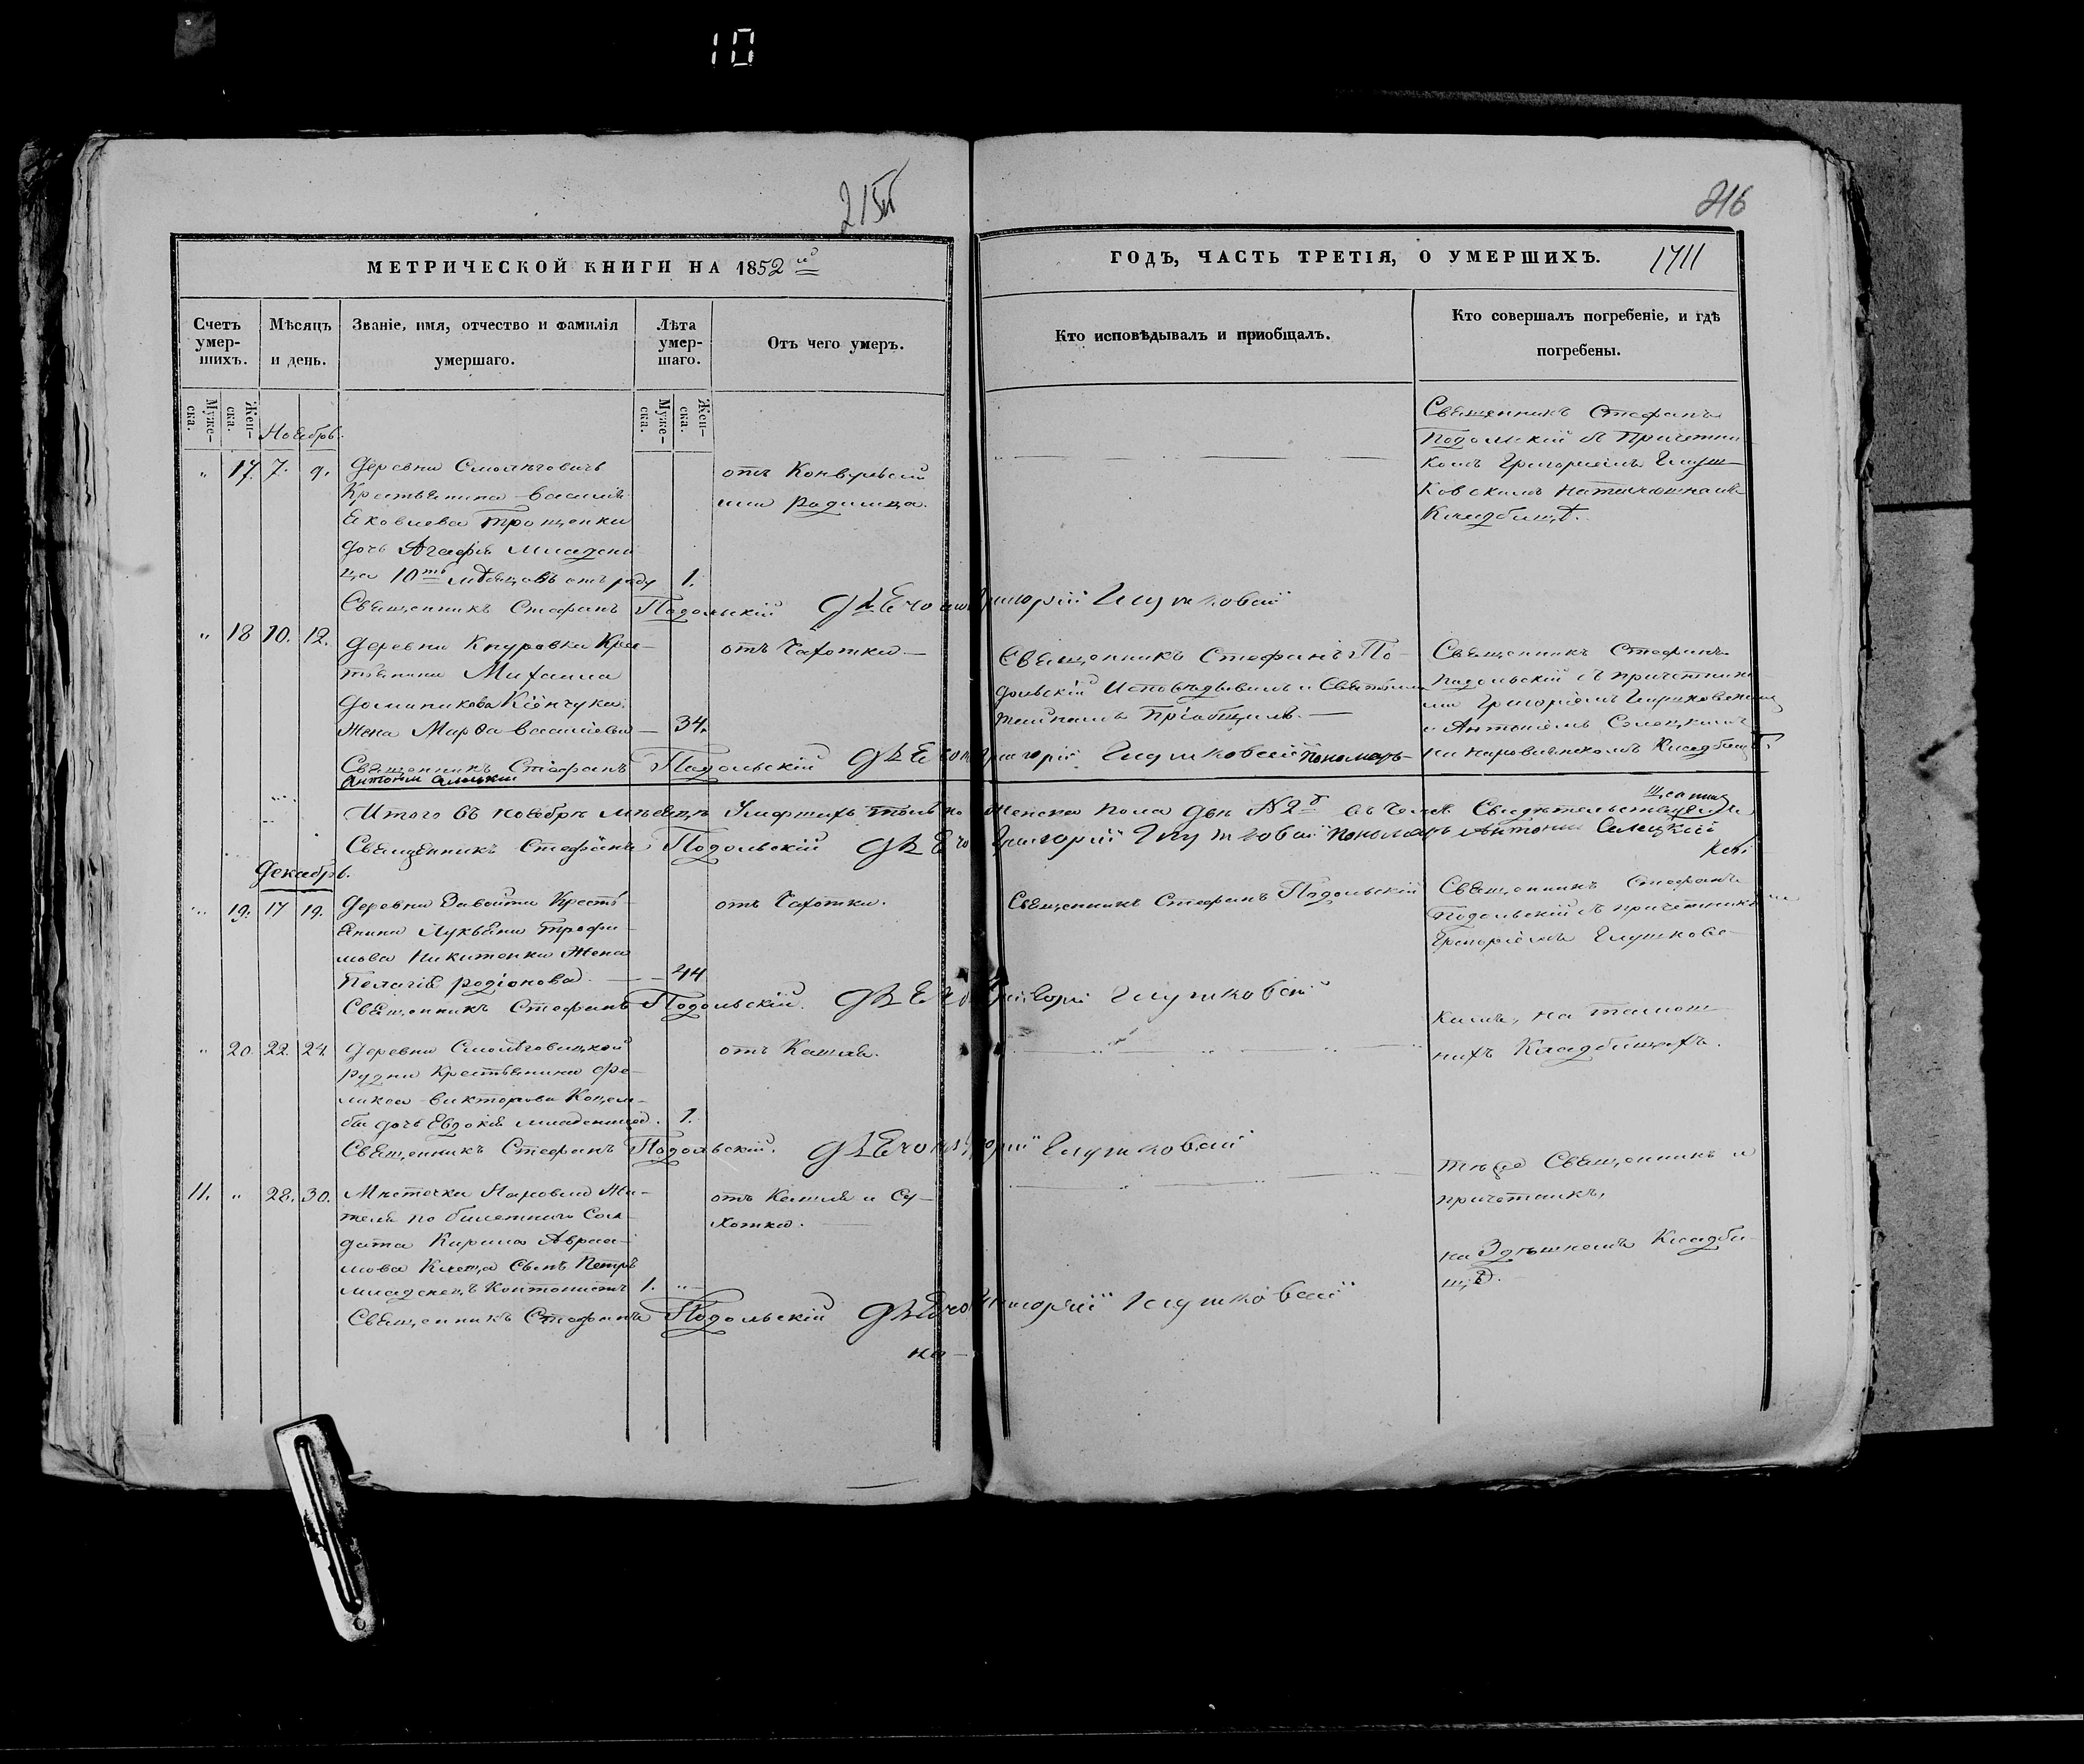 10
215
216
МЕТРИЧЕСКОЙ КНИГИ НА 1852 й
ГОДЪ, ЧАСТЬ ТРЕТІЯ, О УМЕРШИХЪ.
1711
Счетъ умер-шихъ.
Мѣсяцъ и день.
Званіе, имя, отчество и фамилія умершаго.
Лѣта умер-шаго.
Отъ чего умеръ.
Кто исповѣдывалъ и пріобщалъ.
Кто совершалъ погребеніе, и гдѣ погребены.
Муже-ска.
Жен-ска.
Муже-ска.
Жен-ска.
Ноябрь.
" 17. 7. 9.
Деревни Смолѣговичъ
Крестьянина Василія
Яковлева Троценки
дочь Агафія младени
ца 10ть мѣсяцовъ отъ роду 1.
отъ Конвульсій
или родимца.
Священникъ Стефанъ
Подольскій съ Причетни
комъ Григоріемъ Глуш
ковскимъ на тамошнемъ
Кладбищѣ.
Священникъ Стефанъ Подольскій Дьячокъ Григорій Глушковскій
" 18 10. 12.
Деревни Кнуровки Кре-
стьянина Михаила
Доминикова Кіенчука
Жена Марфа Василіева 34.
отъ Чахотки
Священникъ Стефанъ По-
дольскій Исповѣдывалъ и Святыми
тайнами Пріобщилъ.
Священникъ Стефанъ
Подольскій съ причетник
ми Григоріемъ Глушковскимъ
и Антоніемъ Селецкимъ
на наровлянскомъ Кладбищѣ.
Священникъ Стефанъ Подольскій Дьячокъ Григорій Глушковскій Пономарь
Антоній Селецкій
Итого въ ноябрѣ мѣсяцѣ Умершихъ только женска пола двѣ №2й въ чемъ Свидѣтельствуемъ
Священникъ Стефанъ Подольскій Дьячокъ Григорій Глушковскій Пономарь Антоній Селецкій
Декабрь.
" 19. 17 19.
Деревни Завойти Кресть
янина Лукьяна Трофи
мова Никитенки Жена
Пелагія родіонова 44
отъ Чахотки.
Священникъ Стефанъ Подольскій
Священникъ Стефанъ
Подольскій съ причетникомъ
Григоріемъ Глушковс-
кимъ, на тамош
нихъ Кладбищахъ.
Священникъ Стефанъ Подольскій. Дьячокъ Григорій Глушковскій
" 20. 22. 24.
Деревни Смолѣговицкой
Рудни Крестьянина Фе-
ликса Викторова
дочь Евдокія младеница. 1.
отъ Кашля.
Священникъ Стефанъ Подольскій. Дьячокъ Григорій Глушковскій
11. " 28. 30.
Мѣстечка Наровли Жи-
теля по билетного Сол-
дата Кирила Авраа-
мова Клеща Сынъ Петръ
младенецъ Кантонистъ 1. "
отъ Кашля и Су-
хотки.
тѣже Священникъ и
причетникъ,
на Здѣшнемъ Кладби-
щѣ.
Священникъ Стефанъ Подольскій Дьячокъ Григорій Глушковскій
на